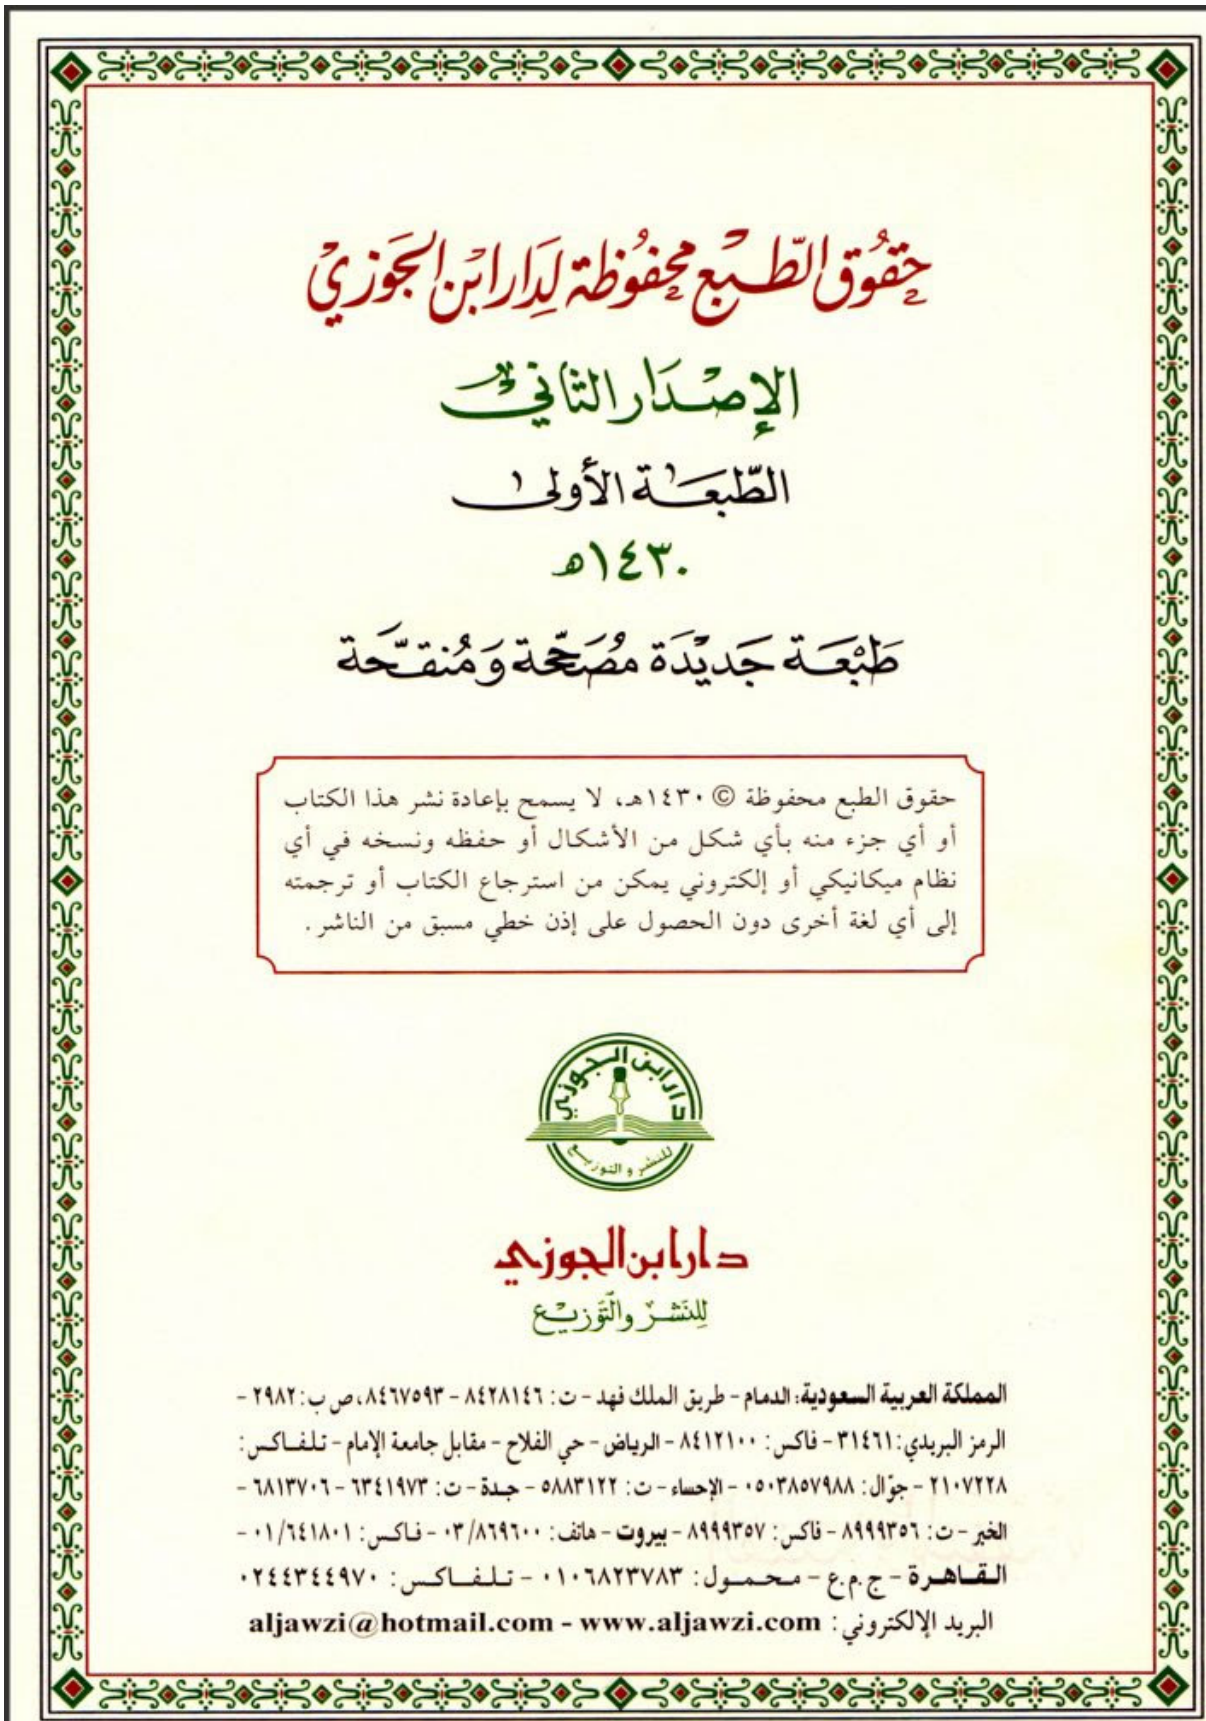 حقوق الطبع محفوظة لدار ابن الجوزي
الإصدار الثاني
الطبعة الأولى
١٤٣٠هـ
طبعة جديدة مصححة ومنقحة
حقوق الطبع محفوظة © ١٤٣٠هـ، لا يسمح بإعادة نشر هذا الكتاب
أو أي جزء منه بأي شكل من الأشكال أو حفظه ونسخه في أي
نظام ميكانيكي أو إلكتروني يمكن من استرجاع الكتاب أو ترجمته
إلى أي لغة أخرى دون الحصول على إذن خطي مسبق من الناشر.
دار ابن الجوزي
للنشر والتوزيع
دار ابن الجوزي
للنشر والتوزيع
المملكة العربية السعودية: الدمام - طريق الملك فهد - ت: ٨٤٢٨١٤٦ - ٨٤٦٧٥٩٣، ص ب: ٢٩٨٢ -
الرمز البريدي: ٣١٤٦١ - فاكس: ٨٤١٢١٠٠ - الرياض - حي الفلاح - مقابل جامعة الإمام - تلفاكس:
٢١٠٧٢٢٨ - جوّال: ٠٥٠٣٨٥٧٩٨٨ - الإحساء - ت: ٥٨٨٣١٢٢ - جدة - ت: ٦٣٤١٩٧٣ - ٦٨١٣٧٠٦ -
الخبر - ت: ٨٩٩٩٣٥٦ - فاكس: ٨٩٩٩٣٥٧ - بيروت - هاتف: ٠٣/٨٦٩٦٠٠ - فاكس: ٠١/٦٤١٨٠١ -
القاهرة - ج.م.ع - محمول: ٠١٠٦٨٢٣٧٨٣ - تلفاكس: ٠٢٤٤٣٤٤٩٧٠
البريد الإلكتروني: aljawzi@hotmail.com - www.aljawzi.com